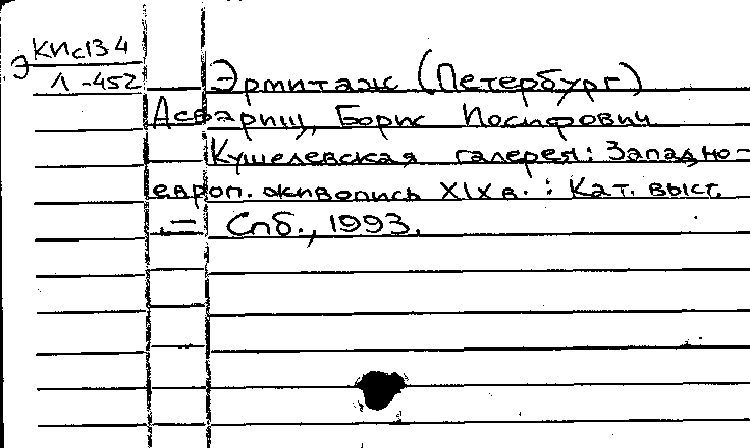 КПс134
Э
Л-452
Эрмитаж (Петербург)
Асвариш, Борис Иосифович
Кушелевская галерея: Западно-
европ. живопись XIX в. : Кат. выст.
.— Спб., 1993.